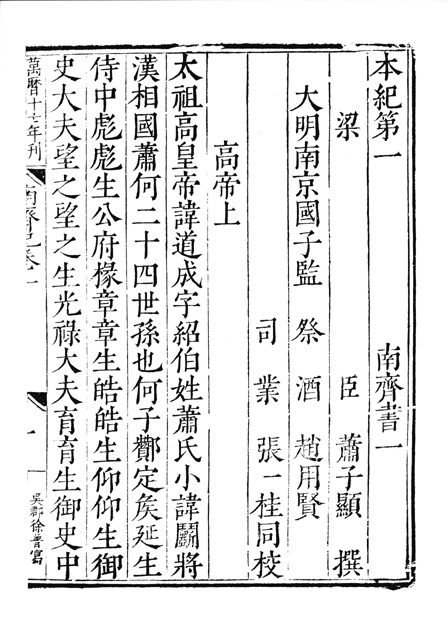 本紀第一　南齊書一
梁　臣蕭子顯撰
大明南京國子監祭酒趙用賢
司業張一桂同校
高帝上
太祖高皇帝諱道成字紹伯姓蕭氏小諱鬬將
漢相國蕭何二十四世孫也何子酇定矦延生
侍中彪彪生公府掾章章生皓皓生仰仰生御
史大夫望之望之生光祿大夫育育生御史中
萬曆十七年刊　南齊紀卷一　一　吳郡徐普寫